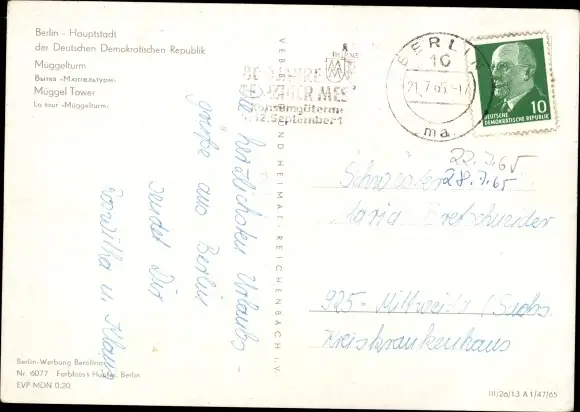 Berlin - Hauptstadt
der Deutschen Demokratischen Republik
Müggelturm
Вытка «Мюггельтурм»
Müggel Tower
La tour «Müggelturm»
Die herzlichsten Urlaubs-
grüße aus Berlin
sendet Dir
Roswitha u. Klaus
Berlin-Werbung Berolina
Nr. 6077 Farbfoto: Huhle, Berlin
EVP MDN 0,20
VEB
UND HEIMAT, REICHENBACH I. V.
800 JAHRE
LEIPZIGER MESSE
Konsumgüterm
12. September 1
BERLIN
10
21.7.65-17
ma
10
DEUTSCHE
DEMOKRATISCHE REPUBLIK
22.7.65
28.7.65
Schwester
Maria Bretschneider
925 - Mittweida / Sachs.
Kreiskrankenhaus
III/26/13 A 1/47/65